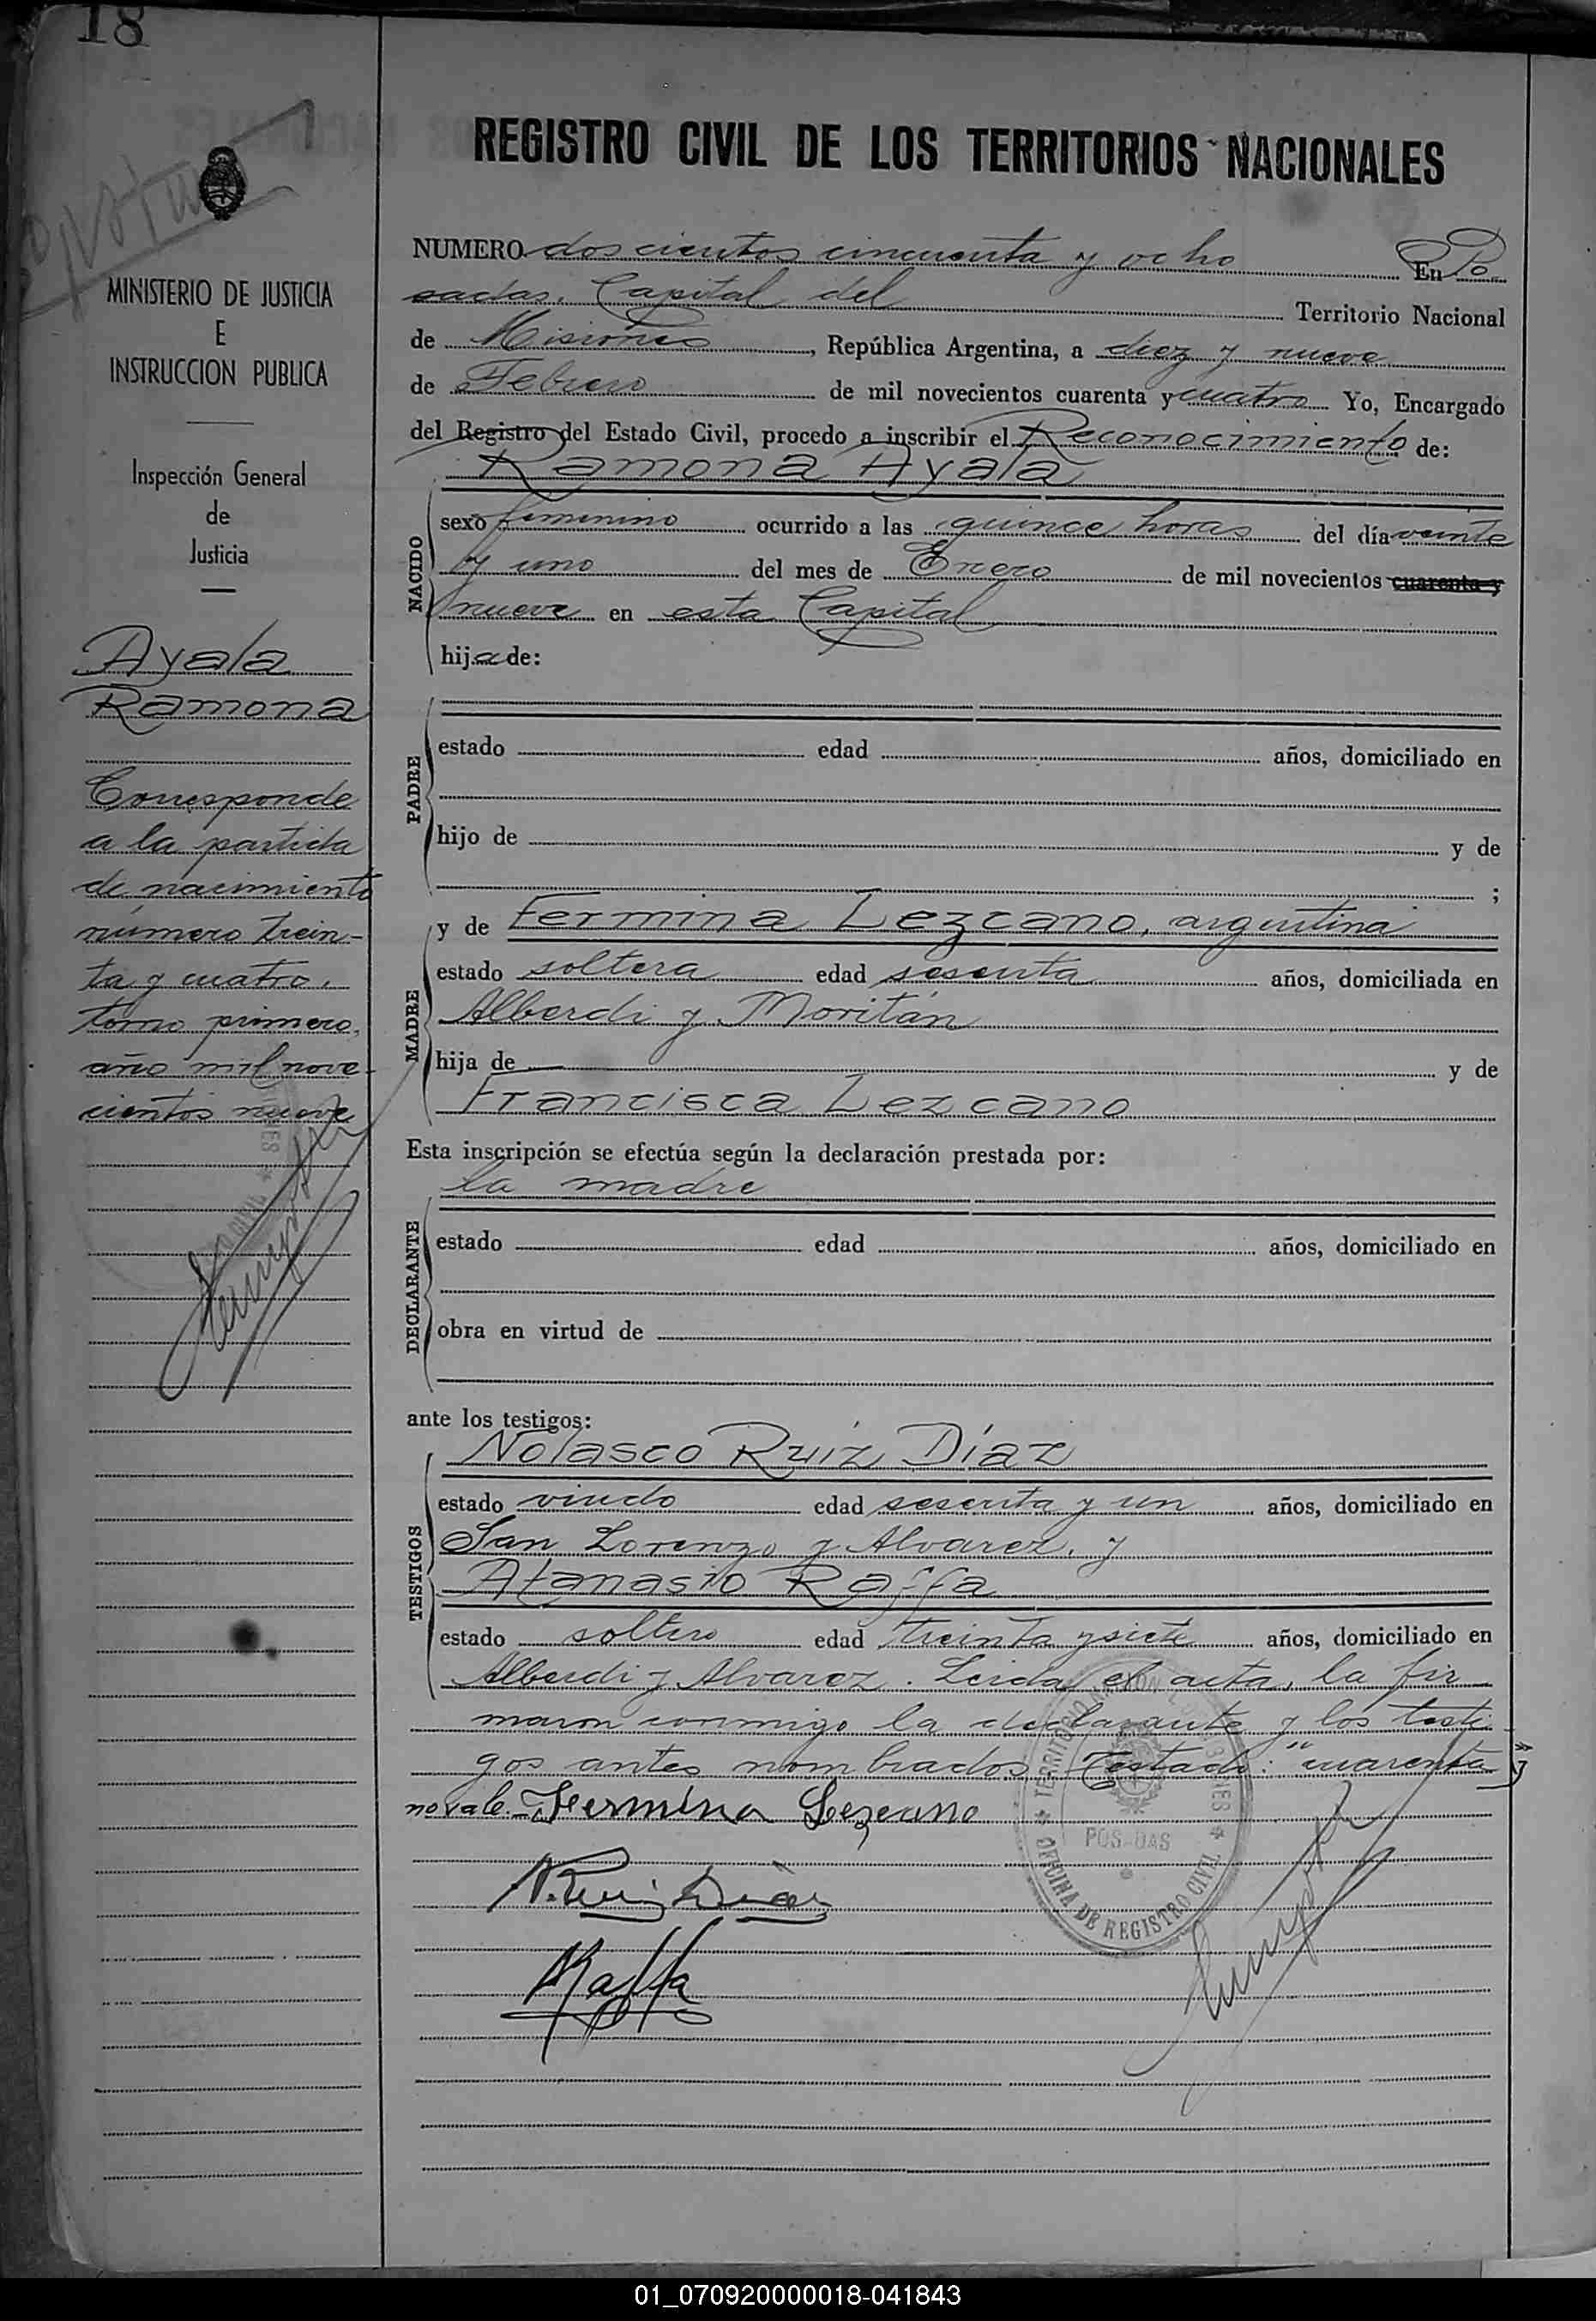 18
REGISTRO CIVIL DE LOS TERRITORIOS NACIONALES
MINISTERIO DE JUSTICIA
E
INSTRUCCION PUBLICA
Inspección General
de
Justicia
Ayala
Ramona
Corresponde
a la partida
de nacimiento
número trein-
ta y cuatro,
tomo primero,
año mil nove-
cientos nueve
NUMERO dos cientos cincuenta y ocho En Po
sadas, Capital del Territorio Nacional
de Misiones, República Argentina, a diez y nueve
de Febrero de mil novecientos cuarenta y cuatro Yo, Encargado
del Registro del Estado Civil, procedo a inscribir el Reconocimiento de:
Ramona Ayala
NACIDO
sexo femenino ocurrido a las quince horas del día veinte
y uno del mes de Enero de mil novecientos cuarenta y
nueve en esta Capital
hija de:
PADRE
estado edad años, domiciliado en
hijo de y de
;
MADRE
y de Fermina Lezcano, argentina
estado soltera edad sesenta años, domiciliada en
Alberdi y Moritán
hija de y de
Francisca Lezcano
Esta inscripción se efectúa según la declaración prestada por:
la madre
DECLARANTE
estado edad años, domiciliado en
obra en virtud de
ante los testigos:
TESTIGOS
Nolasco Ruiz Díaz
estado viudo edad sesenta y un años, domiciliado en
San Lorenzo y Alvarez, y
Atanasio Raffa
estado soltero edad treinta y siete años, domiciliado en
Alberdi y Alvarez. Leida el acta, la fir
maron conmigo la declarante y los testi
gos antes nombrados. Testado: "cuarenta y"
no vale. Fermina Lezcano
N. Ruiz Diaz
ARaffa
OFICINA DE REGISTRO CIVIL
POSADAS
01_070920000018-041843